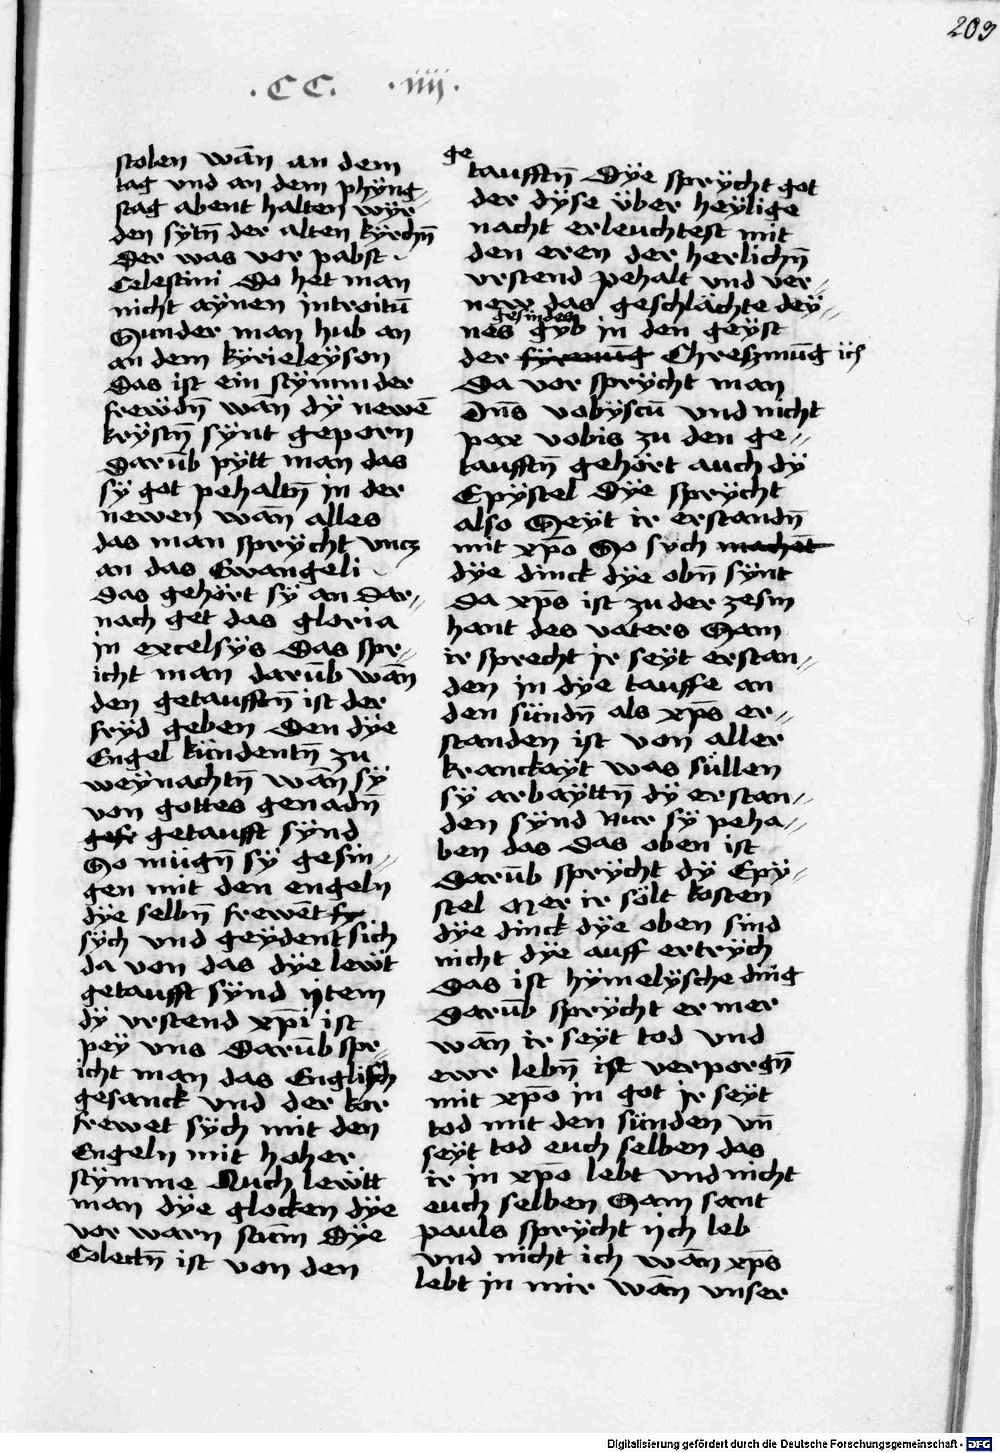 209
·CC· ·iiij·
stolen wān an dem
tag vnd an dem phÿng⸗
stag abent halten wÿr
den sÿtn̄ der alten kÿrchn̄
Der was vor pabst
Celestini Do het man
nicht aÿnen introitū
Sunder man hub an
an dem kÿrieleÿson
Das ist ein stÿmm der
frewdn̄ wān dÿ newē
krÿstn̄ sÿnt geporn
Darūb pÿtt man das
sÿ got pehaltn̄ in der
newen wān alles
das man sprÿcht vncz
an das Ewangeli
Das gehört sÿ an Dar⸗
nach get das gloria
in excelsÿs Das spr⸗
icht man darūb wān
den getaufftn̄ ist der
frÿd geben Den dÿe
Engel kündentn̄ zu
weÿnachtn̄ wān sÿ
von gottes genadn̄
gefr getaufft sÿnd
So mügn̄ sÿ gesin⸗
gen mit den engeln
dÿe selbn̄ frewēt sy
sÿch vnd geÿdent sich
da von das dÿe lewt
getaufft sÿnd ijtem
dÿ vrstend xp̄i ist
peÿ vns Darūb spr⸗
icht man das Englisch
gesanck vnd der kor
frewet sÿch mit den
Engeln mit hoher
stÿmme Auch lewtt
man dÿe glocken dÿe
vor warn stūm Dÿe
Colectn̄ ist von den
ge
taufftn̄ Dÿe sprÿcht got
der dÿse über heÿlige
nacht erleuchtest mit
den eren der herlichn̄
vrstend pehalt vnd ver⸗
new das geschlächte deÿ⸗
gesindes
nes gÿb in den geÿst
der fÿrmūg Chreszmūg ich
Da vor sprÿcht man
Dn̄s vobÿscū vnd nicht
pax vobis zu den ge⸗
taufftn̄ gehört auch dÿ
Epÿstel Dÿe sprÿcht
also Seÿt ir erstandn̄
mit xp̄o So sÿch machet
dÿe dinck dÿe obn̄ sÿnt
Da xp̄s ist zu der zesm
hant des vaters Sam
ir sprecht ir seÿt erstan⸗
den in dÿe tauffe an
den sündn̄ als xp̄s er⸗
standen ist von aller
kranckaÿt was süllen
sÿ arbaÿttn̄ dÿ erstan⸗
den sÿnd Nur sÿ peha⸗
ben das das oben ist
Darūb sprÿcht dÿ Epÿ⸗
stel Mer ir sölt kosten
dÿe dinck dÿe oben sind
nicht dÿe auff ertrÿch
Das ist hÿmelÿsche dīng
Darūb sprÿcht er mer
wān ir seÿt tod vnd
ewr lebn̄ ist verporgn̄
mit xp̄o in got ir seÿt
tod mit den sünden vn̄
seÿt tod euch selben das
ir in xp̄o lebt vnd nicht
euch selben Sam sant
pauls sprÿcht ijch leb
vnd nicht ich wān xp̄s
lebt in mir wān vnser
Digitalisierung gefördert durch die Deutsche Forschungsgemeinschaft - DFG